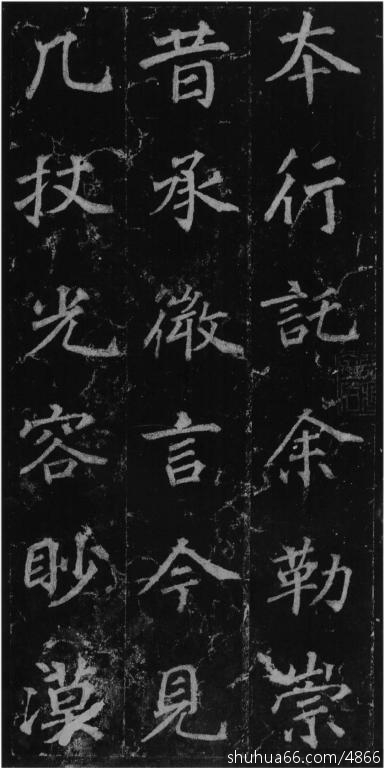 夲行託余勒崇
昔承微言今見
几杖光容眇漠
shuhua66.com/4866